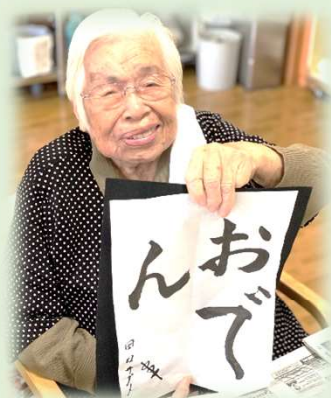 おで
ん